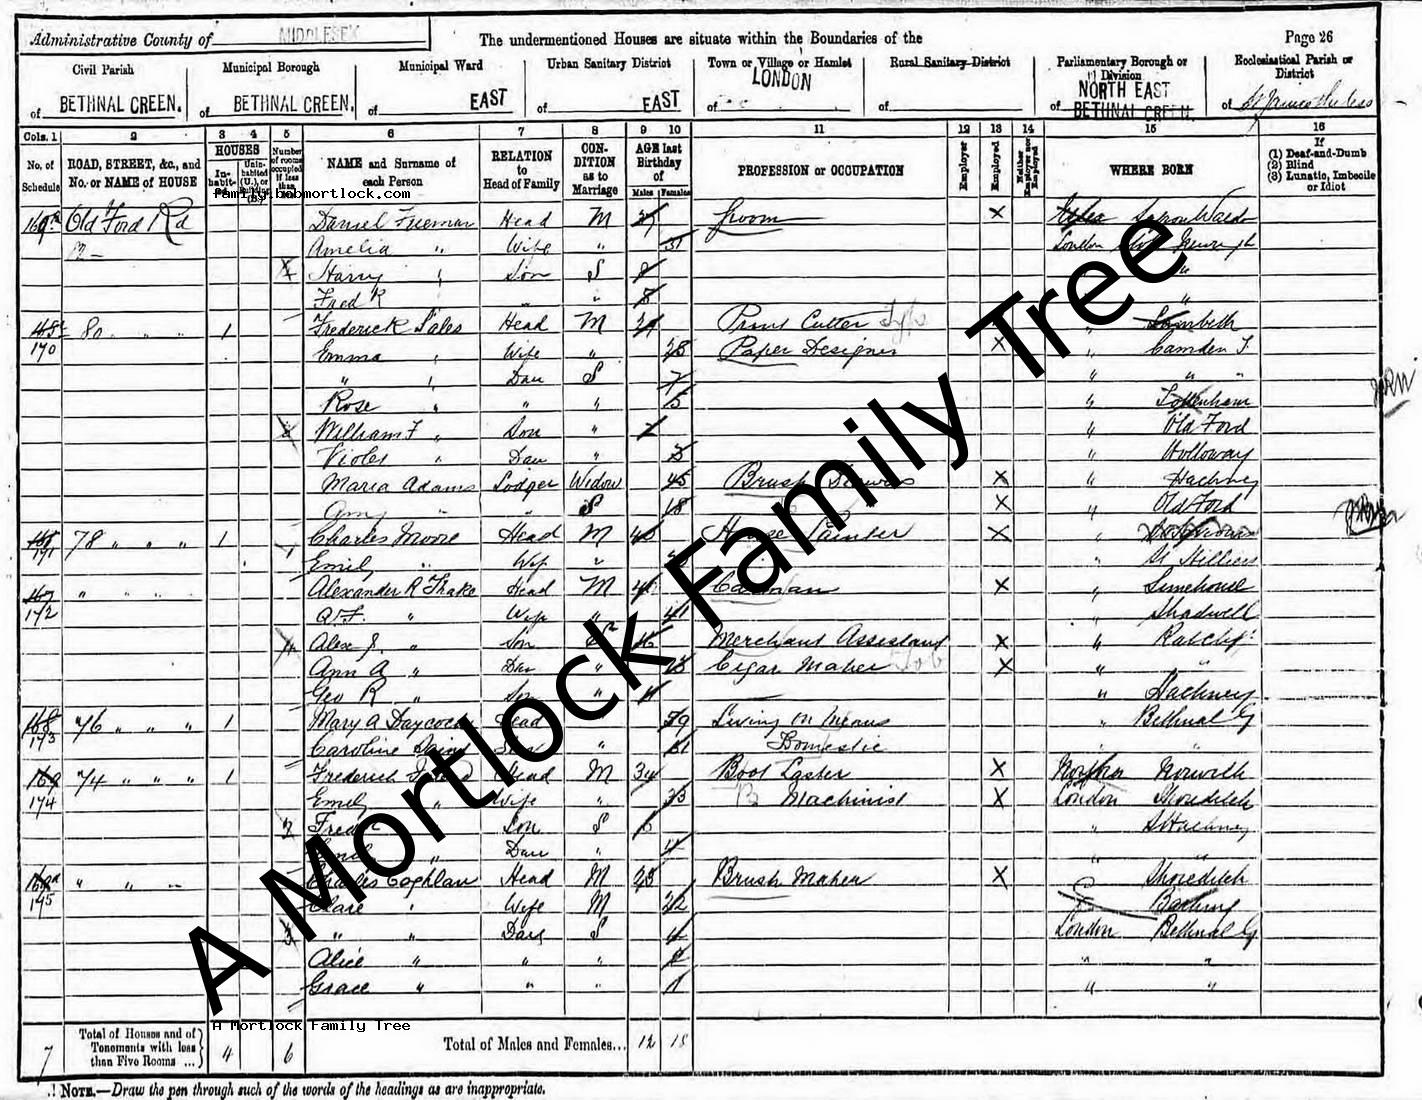 Administrative County of MIDDLESEX The undermentioned Houses are situate within the Boundaries of the Page 26
Civil Parish Municipal Borough Municipal Ward Urban Sanitary District Town or Village or Hamlet Rural Sanitary District Parliamentary Borough or Division Ecclesiastical Parish or District
of BETHNAL GREEN. of BETHNAL GREEN. of EAST of EAST of LONDON of of NORTH EAST BETHNAL GREEN. of St James the Less
Cols. 1 2 3 4 5 6 7 8 9 10 11 12 13 14 15 16
No. of Schedule ROAD, STREET, &c., and No. or NAME of HOUSE HOUSES Inhabited Uninhabited (U.), or Building (B.) Number of rooms occupied if less than five NAME and Surname of each Person RELATION to Head of Family CONDITION as to Marriage AGE last Birthday of Males Females PROFESSION or OCCUPATION Employer Employed Neither Employer nor Employed WHERE BORN If (1) Deaf-and-Dumb (2) Blind (3) Lunatic, Imbecile or Idiot
family.bobmortlock.com
Old Ford Rd Daniel Freeman Head M 37 Groom X
Amelia " Wife " 31 London
4 Harry " Son S 8 "
Fred R " " "
80 " " 1 Frederick Sales Head M 29 Print Cutter " Lambeth
170 Emma " Wife " 28 Paper Designer X " Camden T
" " Dau S 7 " " "
Rose " " " 5 " Tottenham
William F " Son " " Old Ford
Violet " Dau " Holloway
Maria Adams Lodger Widow 45 Brush X " Hackney
Amy " " S 18 X " Old Ford
171 78 " " " 1 Charles Moore Head M House Painter X
Emily " Wife "
" " " Alexander R Thake Head M Carman X " Limehouse
172 " Wife " 41 Shadwell
4 Alex J. " Son 16 Merchant Assistant X " Ratcliff
Ann A " Dau " Cigar Maker X " "
Geo R " Son " 11 " Hackney
173 76 " " " 1 Mary A Daycock Head 59 Living on Means " Bethnal G
Caroline " Domestic " "
74 " " " 1 Frederick Head M 34 Boot Laster X Norwich
174 Emily " Wife " 33 B Machinist X London Shoreditch
2 Fredk " Son S 6 " Hackney
Emily " Dau " 4 " "
" " " Charles Coghlan Head M Brush Maker X Shoreditch
175 Clare " Wife M 22 Barking
3 " " Daur S 4 London Bethnal G
Alice " " " " "
Grace " " " 1 " "
A Mortlock Family Tree
A Mortlock Family Tree
7 Total of Houses and of Tenements with less than Five Rooms ... 4 6 Total of Males and Females... 12 18
NOTE.—Draw the pen through such of the words of the headings as are inappropriate.